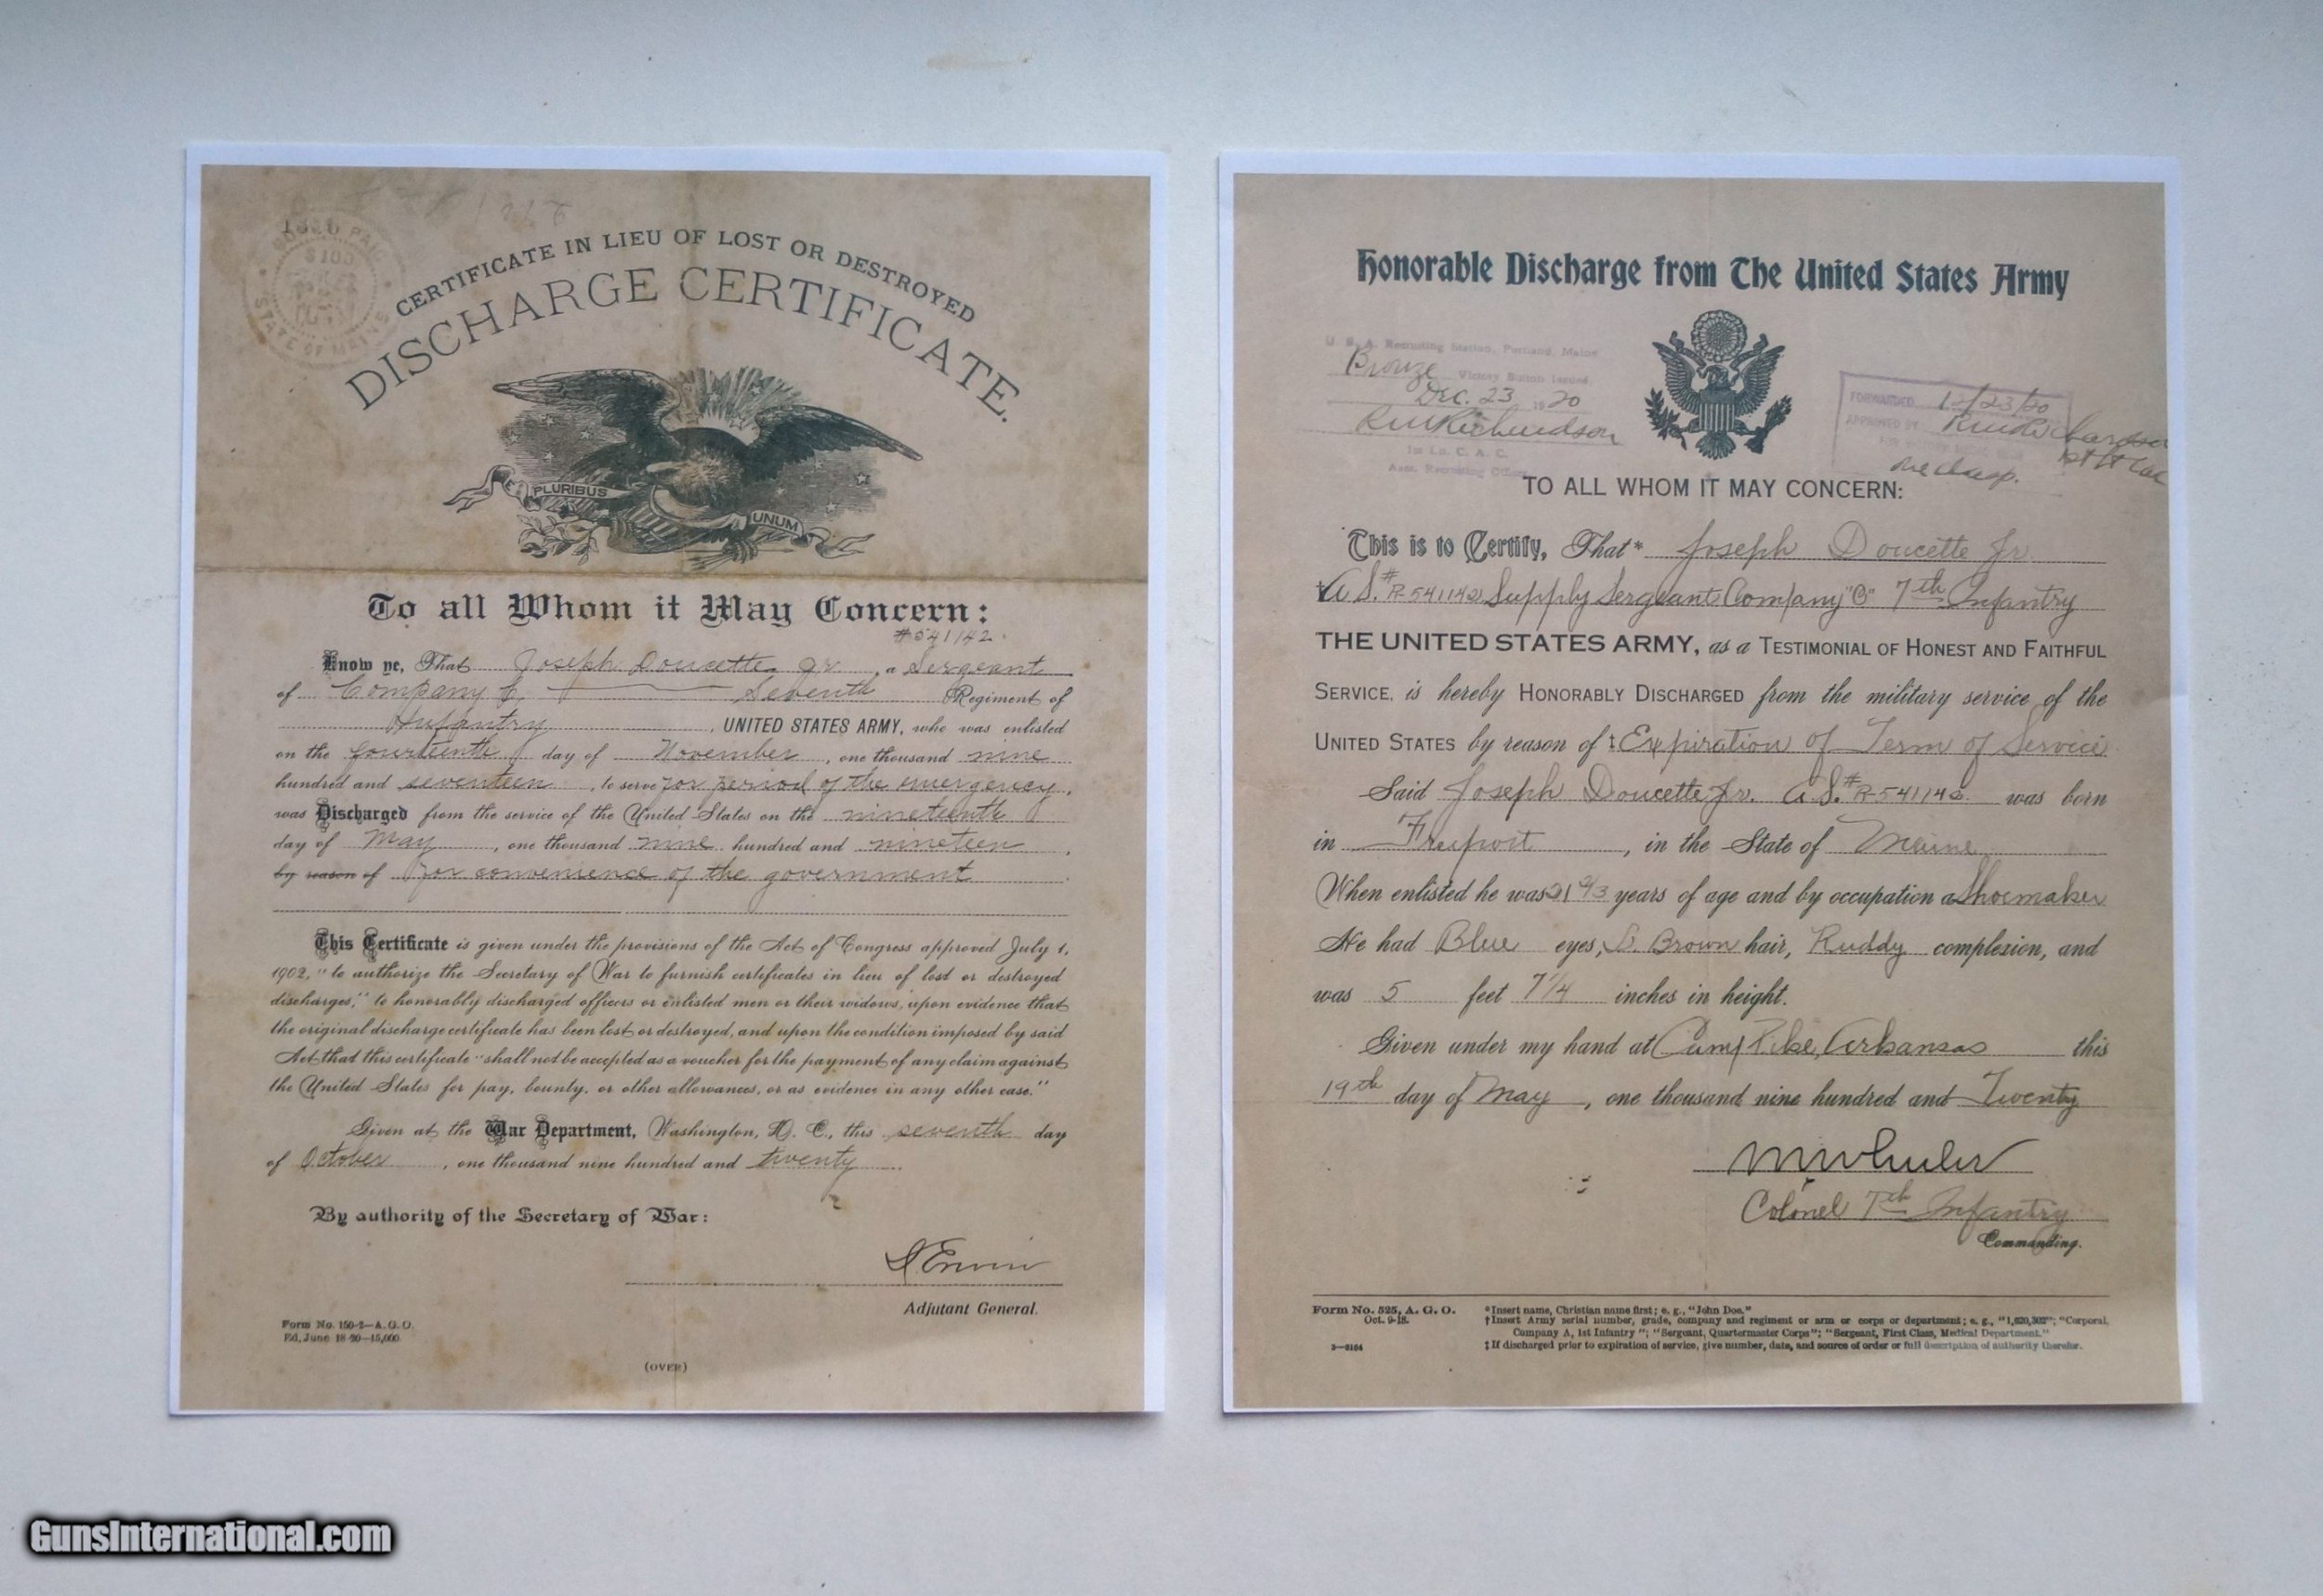 BONUS PAID
$100
STATE OF MAINE
CERTIFICATE IN LIEU OF LOST OR DESTROYED
DISCHARGE CERTIFICATE.
E PLURIBUS UNUM
To all Whom it May Concern:
#541142
Know ye, That Joseph Doucette Jr., a Sergeant
of Company C, Seventh Regiment of
Infantry, UNITED STATES ARMY, who was enlisted
on the fourteenth day of November, one thousand nine
hundred and seventeen, to serve for period of the emergency,
was Discharged from the service of the United States on the nineteenth
day of May, one thousand nine hundred and nineteen,
by reason of for convenience of the government
This Certificate is given under the provisions of the Act of Congress approved July 1,
1902, "to authorize the Secretary of War to furnish certificates in lieu of lost or destroyed
discharges," to honorably discharged officers or enlisted men or their widows, upon evidence that
the original discharge certificate has been lost or destroyed, and upon the condition imposed by said
Act that this certificate "shall not be accepted as a voucher for the payment of any claim against
the United States for pay, bounty, or other allowances, or as evidence in any other case."
Given at the War Department, Washington, D. C., this seventh day
of October, one thousand nine hundred and twenty.
By authority of the Secretary of War:
Adjutant General.
Form No. 150-2—A.G.O.
Ed. June 18-20—15,000.
(OVER)
Honorable Discharge from The United States Army
U. S. A. Recruiting Station, Portland, Maine
Bronze Victory Button Issued
Dec. 23 1920
RW Richardson
1st Lt. C. A. C.
Asst. Recruiting Officer
FORWARDED 12/23/20
APPROVED BY
one clasp.
TO ALL WHOM IT MAY CONCERN:
This is to Certify, That* Joseph Doucette Jr.
†A.S.# R-541142 Supply Sergeant Company "C" 7th Infantry
THE UNITED STATES ARMY, as a TESTIMONIAL OF HONEST AND FAITHFUL
SERVICE, is hereby HONORABLY DISCHARGED from the military service of the
UNITED STATES by reason of ‡ Expiration of Term of Service
Said Joseph Doucette Jr. A.S.# R-541142 was born
in Freeport, in the State of Maine
When enlisted he was 21 2/3 years of age and by occupation a Shoemaker
He had Blue eyes, D. Brown hair, Ruddy complexion, and
was 5 feet 7 1/4 inches in height.
Given under my hand at Camp Pike, Arkansas this
19th day of May, one thousand nine hundred and Twenty
Colonel 7th Infantry
Commanding.
Form No. 525, A. G. O.
Oct. 9-18.
3—3164
*Insert name, Christian name first; e. g., "John Doe."
†Insert Army serial number, grade, company and regiment or arm or corps or department; e. g., "1,620,302"; "Corporal,
Company A, 1st Infantry"; "Sergeant, Quartermaster Corps"; "Sergeant, First Class, Medical Department."
‡If discharged prior to expiration of service, give number, date, and source of order or full description of authority therefor.
GunsInternational.com